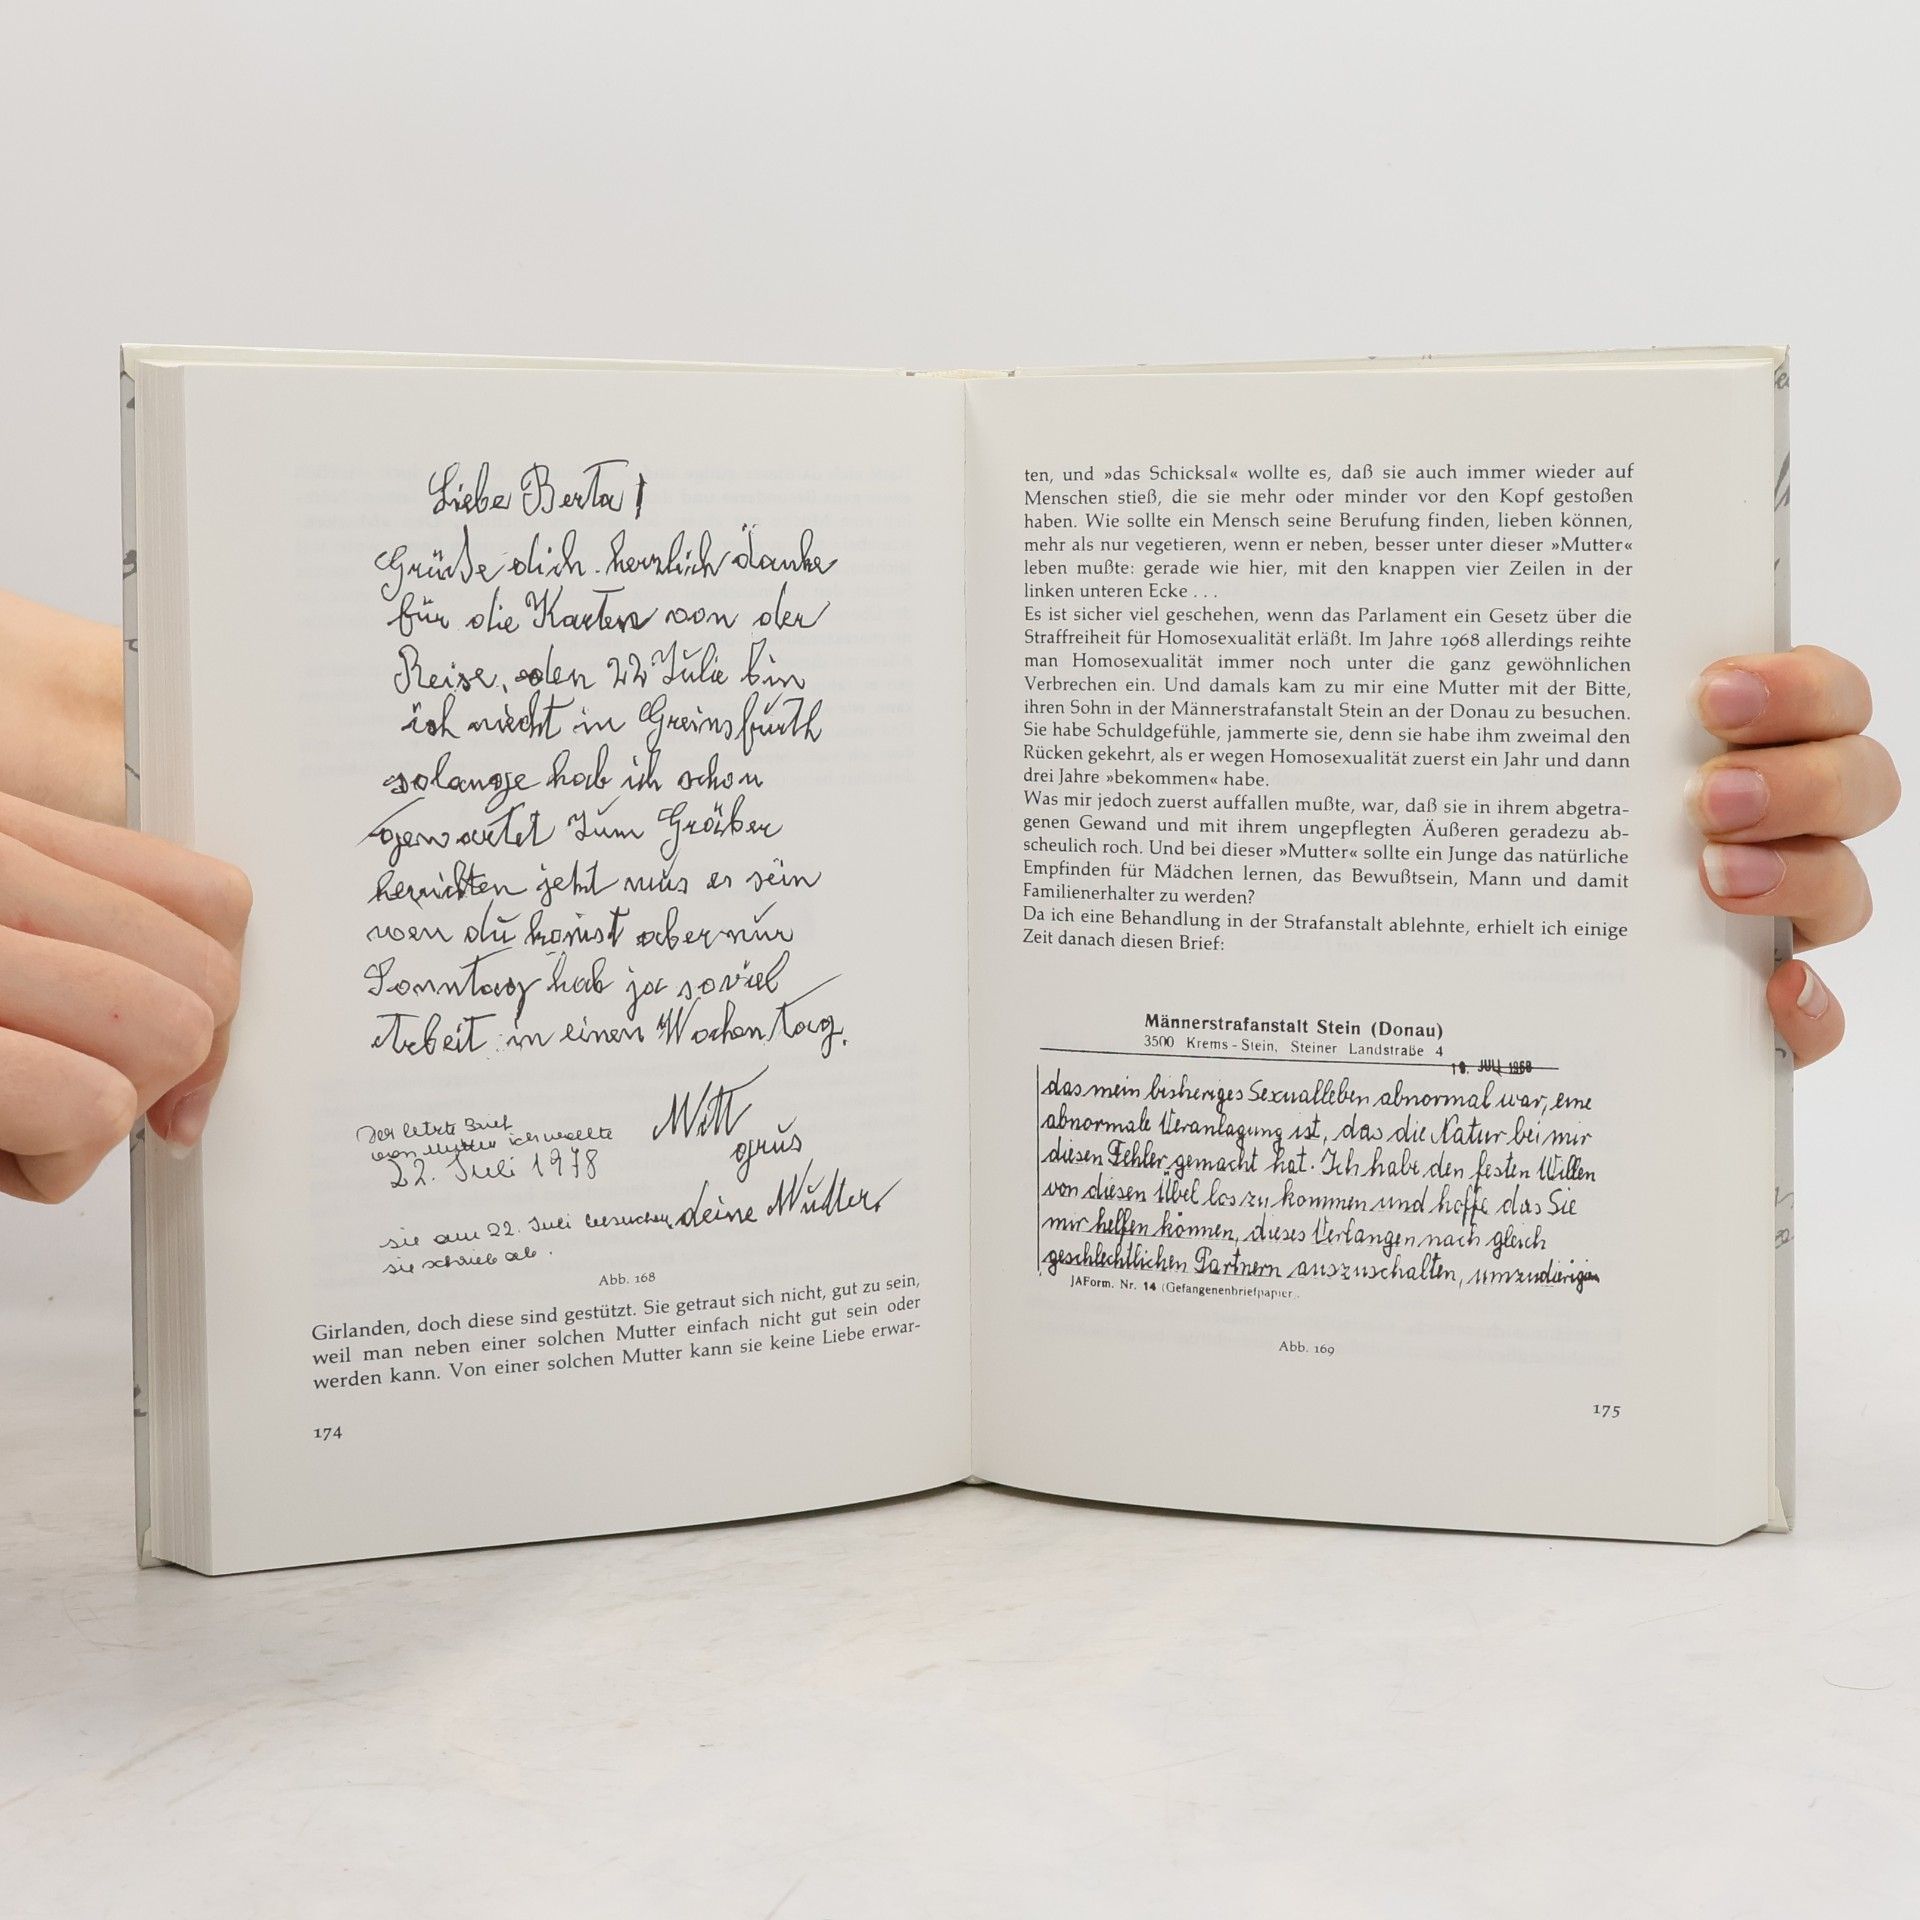 Liebe Berta!
Grüße dich herzlich danke
für die Karten von der
Reise, den 22 Julie bin
ich niecht in Greinsfurth
solange hab ich schon
gewartet zum Gräber
herrichten jetzt mus es sein
wen du komst aber nur
Sonntag hab ja soviel
Arbeit in einen Wochentag.
Mitt
grus
deine Mutter.
Der letzte Brief
von Mutter ich wollte
22. Juli 1978
sie am 22. Juli besuchen,
sie schrieb ab.
Abb. 168
Girlanden, doch diese sind gestützt. Sie getraut sich nicht, gut zu sein,
weil man neben einer solchen Mutter einfach nicht gut sein oder
werden kann. Von einer solchen Mutter kann sie keine Liebe erwar-
174
ten, und »das Schicksal« wollte es, daß sie auch immer wieder auf
Menschen stieß, die sie mehr oder minder vor den Kopf gestoßen
haben. Wie sollte ein Mensch seine Berufung finden, lieben können,
mehr als nur vegetieren, wenn er neben, besser unter dieser »Mutter«
leben mußte: gerade wie hier, mit den knappen vier Zeilen in der
linken unteren Ecke . . .
Es ist sicher viel geschehen, wenn das Parlament ein Gesetz über die
Straffreiheit für Homosexualität erläßt. Im Jahre 1968 allerdings reihte
man Homosexualität immer noch unter die ganz gewöhnlichen
Verbrechen ein. Und damals kam zu mir eine Mutter mit der Bitte,
ihren Sohn in der Männerstrafanstalt Stein an der Donau zu besuchen.
Sie habe Schuldgefühle, jammerte sie, denn sie habe ihm zweimal den
Rücken gekehrt, als er wegen Homosexualität zuerst ein Jahr und dann
drei Jahre »bekommen« habe.
Was mir jedoch zuerst auffallen mußte, war, daß sie in ihrem abgetra-
genen Gewand und mit ihrem ungepflegten Äußeren geradezu ab-
scheulich roch. Und bei dieser »Mutter« sollte ein Junge das natürliche
Empfinden für Mädchen lernen, das Bewußtsein, Mann und damit
Familienerhalter zu werden?
Da ich eine Behandlung in der Strafanstalt ablehnte, erhielt ich einige
Zeit danach diesen Brief:
Männerstrafanstalt Stein (Donau)
3500 Krems-Stein, Steiner Landstraße 4
JULI 1968
das mein bisheriges Sexualleben abnormal war, eine
abnormale Veranlagung ist, das die Natur bei mir
diesen Fehler gemacht hat. Ich habe den festen Willen
von diesen Übel los zu kommen und hoffe das Sie
mir helfen können, dieses Verlangen nach gleich
geschlechtlichen Partnern auszuschalten,
JAForm. Nr. 14 (Gefangenenbriefpapier).
Abb. 169
175